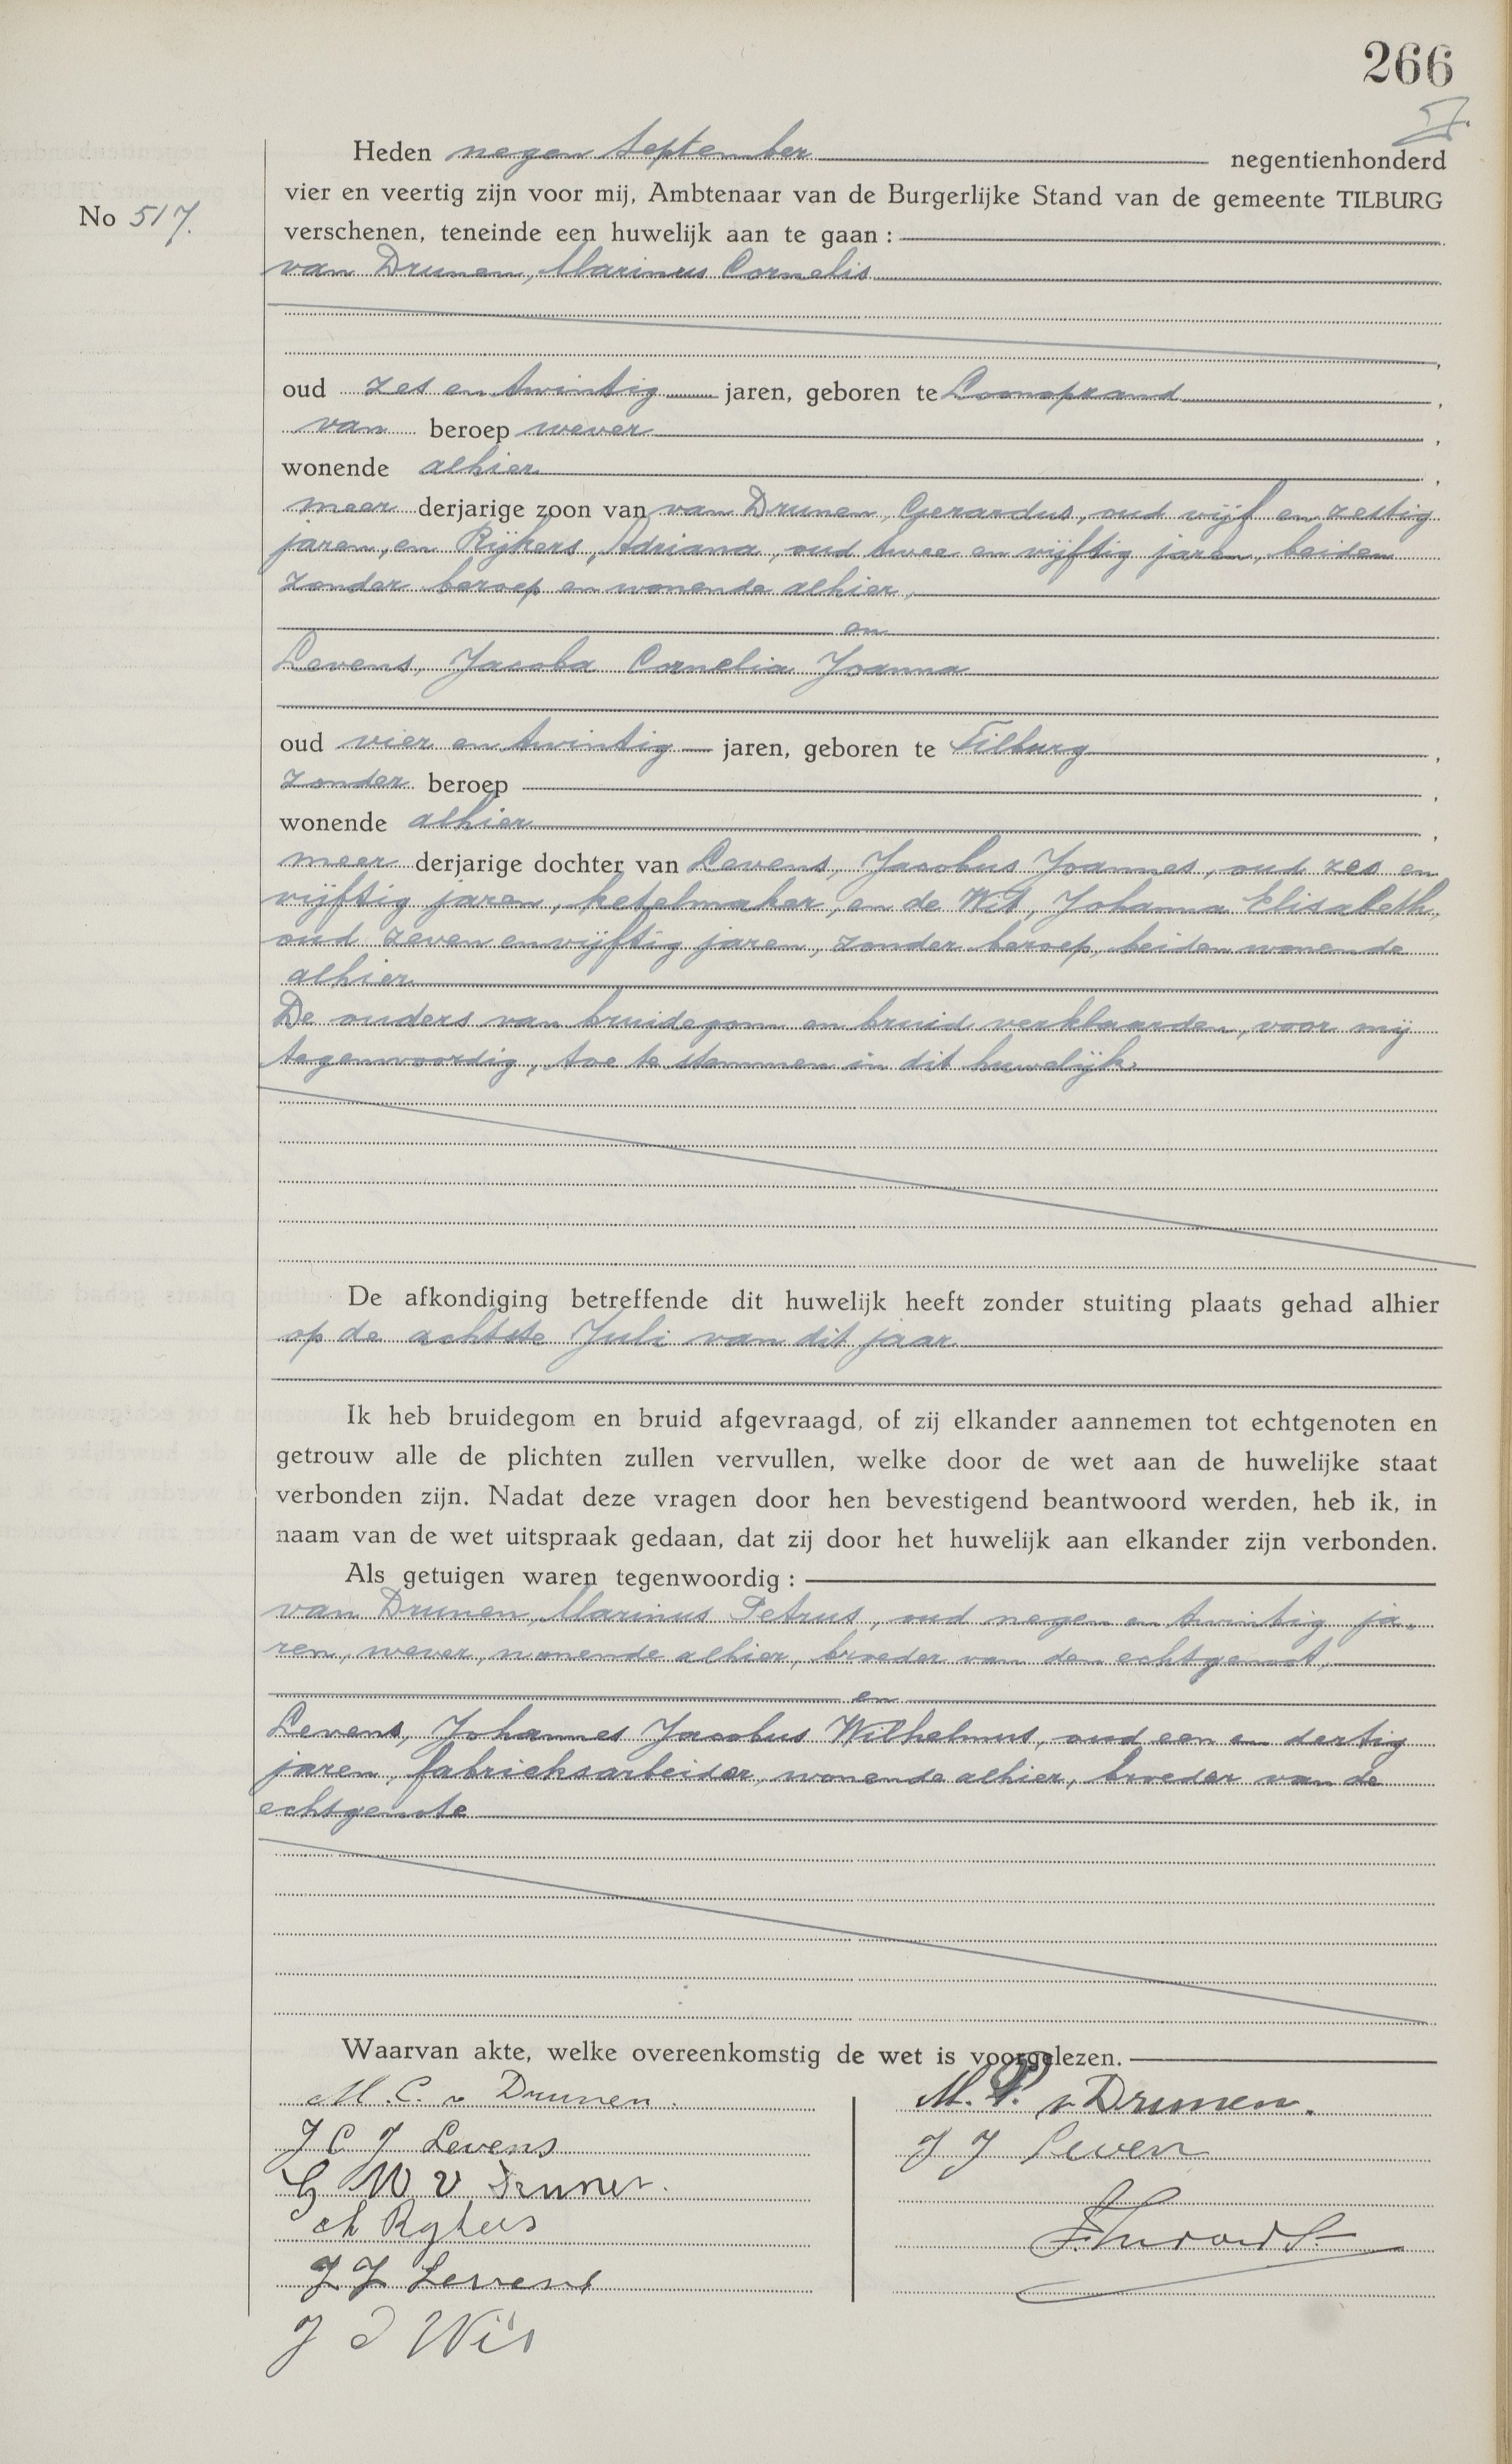 266
Heden negen September negentienhonderd
vier en veertig zijn voor mij, Ambtenaar van de Burgerlijke Stand van de gemeente TILBURG
No 517.
verschenen, teneinde een huwelijk aan te gaan :
van Drunen, Marinus Cornelis
oud zes en twintig jaren, geboren te Loonopzand,
van beroep wever,
wonende alhier,
meer derjarige zoon van van Drunen, Gerardus, oud vijf en zestig
jaren, en Rijkers, Adriana, oud twee en vijftig jaren, beiden
zonder beroep en wonende alhier,
en
Levens, Jacoba Cornelia Joanna
oud vier en twintig jaren, geboren te Tilburg,
zonder beroep,
wonende alhier,
meer derjarige dochter van Levens, Jacobus Joannes, oud zes en
vijftig jaren, ketelmaker, en de Wit, Johanna Elisabeth,
oud zeven en vijftig jaren, zonder beroep, beiden wonende
alhier
De ouders van bruidegom en bruid verklaarden, voor mij
tegenwoordig, toe te stemmen in dit huwelijk.
De afkondiging betreffende dit huwelijk heeft zonder stuiting plaats gehad alhier
op de achtste Juli van dit jaar
Ik heb bruidegom en bruid afgevraagd, of zij elkander aannemen tot echtgenoten en
getrouw alle de plichten zullen vervullen, welke door de wet aan de huwelijke staat
verbonden zijn. Nadat deze vragen door hen bevestigend beantwoord werden, heb ik, in
naam van de wet uitspraak gedaan, dat zij door het huwelijk aan elkander zijn verbonden.
Als getuigen waren tegenwoordig :
van Drunen, Marinus Petrus, oud negen en twintig ja-
ren, wever, wonende alhier, broeder van den echtgenoot,
en
Levens, Johannes Jacobus Wilhelmus, oud een en dertig
jaren, fabrieksarbeider, wonende alhier, broeder van de
echtgenote
Waarvan akte, welke overeenkomstig de wet is voorgelezen.
M. C. v Drunen.
J C J Levens
G M v Drunen.
J J Levens
J d Wit
M. P. v Drunen.
J J Levens